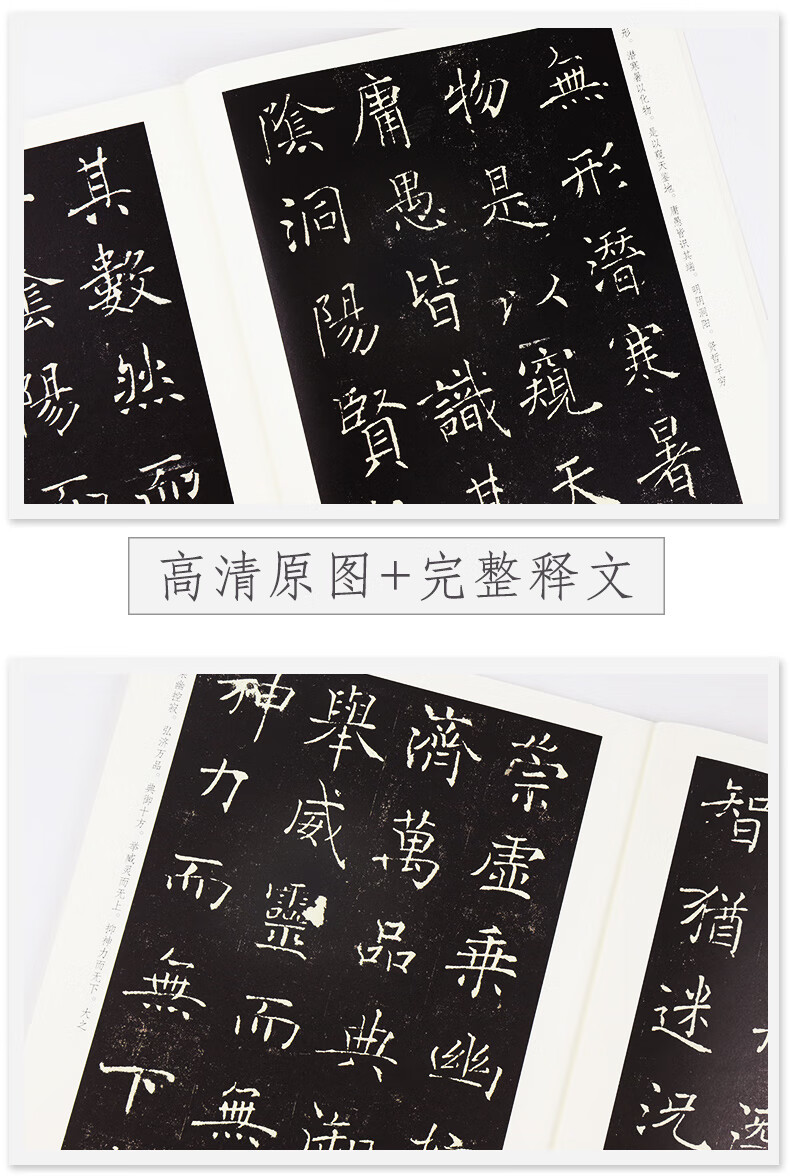 形。潜寒暑以化物。是以窥天鉴地。庸愚皆识其端。明阴洞阳。贤哲罕穷
無形潛寒暑
物是以窺天
庸愚皆識其
陰洞陽賢
其數然而
陰陽而
高清原图+完整释文
智猶迷況
崇虛乘幽
濟萬品典御
舉威靈而無
神力而無下
乘幽控寂。弘济万品。典御十方。举威灵而无上。抑神力而无下。大之